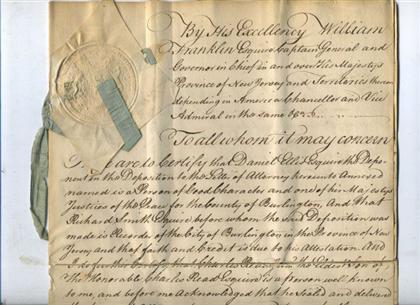 By His Excellency William
Franklin Esquire Captain General and
Governor in Chief in and over His Majestys
Province of New Jersey and Territories thereon
depending in America Chancellor and Vice
Admiral in the same &c
To all whom it may concern
I do hereby Certify that Daniel Ellis Esquire the Depo-
nent in the Deposition to the Letter of Attorney hereunto Annexed
named is a Person of Good Character and one of his Majestys
Justices of the Peace for the County of Burlington, And that
Richard Smith Esquire before whom the said Deposition was
made is Recorder of the City of Burlington in the Province of New
Jersey and that faith and Credit is due to his Attestation. And
I do further Certify that Charles Read Esquire the Eldest Son of
The Honorable Charles Read Esquire is a Person well known
to me, and before me Acknowledged that he Seald and delivered